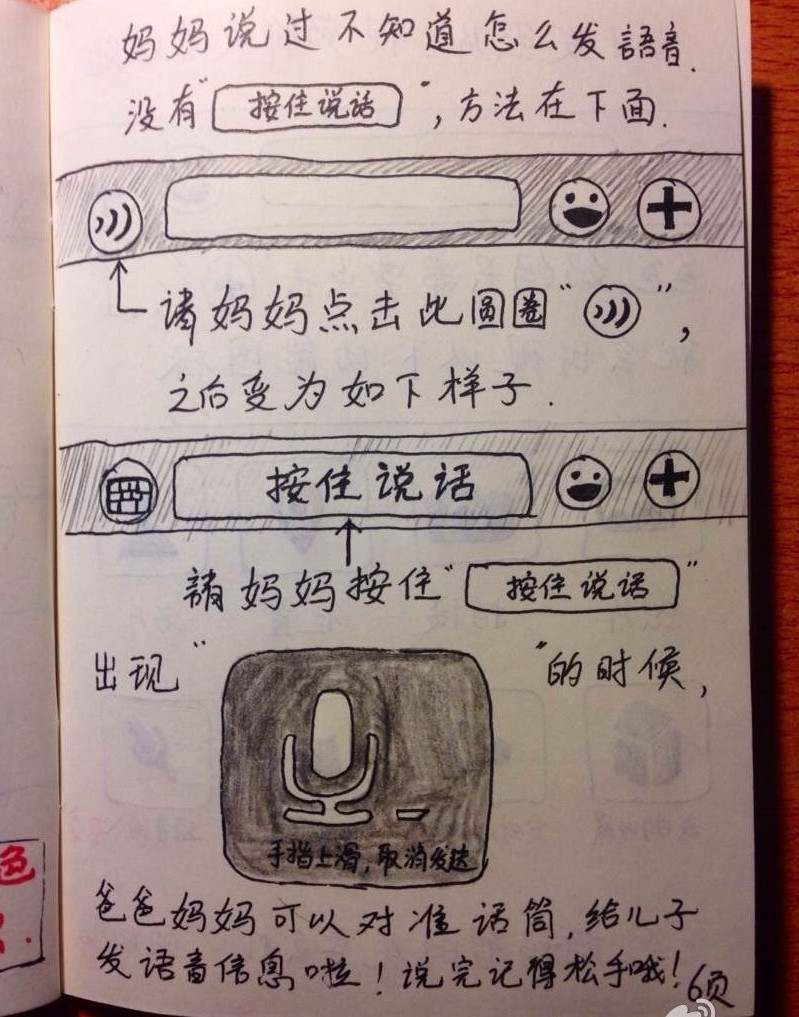 妈妈说过不知道怎么发語音.
没有"按住说话",方法在下面.
請妈妈点击此圆圈"",
之后变为如下样子.
按住说话
請妈妈按住"按住说话"
出现""的时候,
手指上滑,取消发送
爸爸妈妈可以对准话筒,给儿子
发语音信息啦!说完记得松手哦!
6页
色